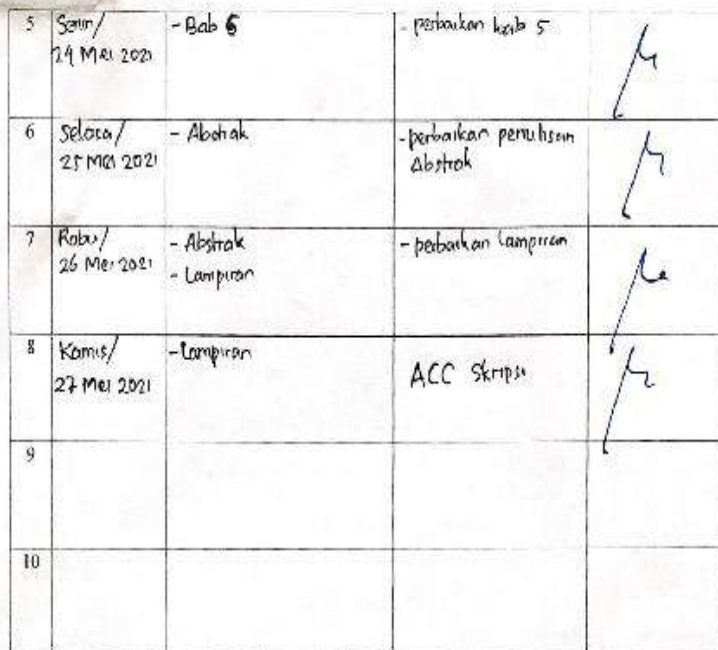 5
Senin/
24 Mei 2021
- Bab 5
- perbaikan bab 5
6
Selasa/
25 Mei 2021
- Abstrak
- perbaikan penulisan
Abstrak
7
Rabu/
26 Mei 2021
- Abstrak
- Lampiran
- perbaikan Lampiran
8
Kamis/
27 Mei 2021
- Lampiran
ACC Skripsi
9
10